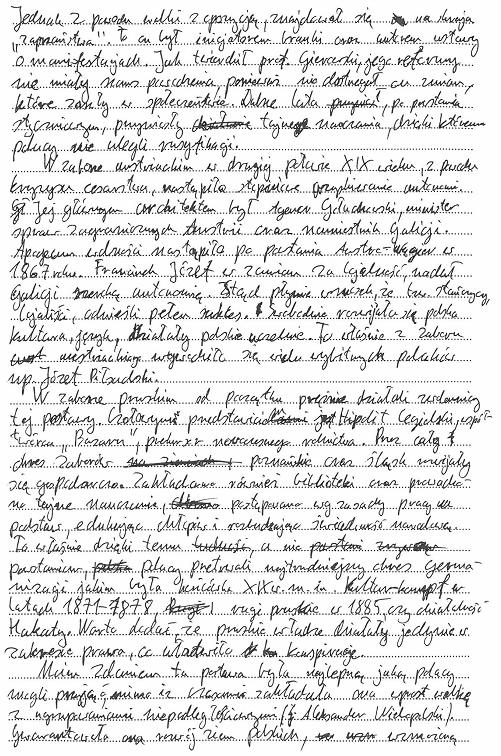 Jednak z powodu walki z opozycją, znajdował się na skraju
"zaprzaństwa". To on był inicjatorem branki oraz autorem ustawy
o manifestacjach. Jak twierdził prof. Gierowski, jego reformy
nie miały szans powodzenia, ponieważ nie dostrzegał on zmian,
które zaszły w społeczeństwie. Dalsze lata, po powstaniu
styczniowym, przyniosły tajne nauczania, dzięki któremu
polacy nie ulegli rusyfikacji.
W zaborze austriackim w drugiej połowie XIX wieku, z powodu
kryzysu cesarstwa, nastąpiło stopniowe autonomii.
Jej głównym architektem był Agenor Gołuchowski, minister
spraw zagranicznych Austrii oraz namiestnik Galicji.
Apogeum wolności nastąpiło po powstaniu Austro-Węgier w
1867 roku. Franciszek Józef w zamian za lojalność, nadał
Galicji szeroką autonomię. Stąd płynie wniosek, że tzw. stańczycy,
lojaliści, odnieśli pełen sukces. swobodnie rozwijała się polska
kultura, język, działały polskie uczelnie. To właśnie z zaboru
austriackiego wywodziło się wielu wybitnych polaków
np. Józef Piłsudski.
W zaborze pruskim od początku prężnie działali zwolennicy
tej postawy. Czołowym przedstawicielem jest Hipolit Cegielski, współ-
twórca "Bazaru", prekursor nowoczesnego rolnictwa. Przez cały
okres zaborów poznańskie oraz śląsk rozwijały
się gospodarczo. Zakładano również biblioteki oraz prowadzo-
no tajne nauczanie, postępowano wg zasady pracy u
podstaw, edukując chłopów i rozbudzając świadomość narodową.
To właśnie dzięki temu, a nie
powstaniom, polacy przetrwali najtrudniejszy okres germa-
nizacji jakim była końcówka XIX w. m.in. Kultur-kampf w
latach 1871-1878, rugi pruskie w 1885, czy działalność
Hakaty. Warto dodać, że pruskie władze działały jedynie w
zakresie prawa, co utrudniało konspirację.
Moim zdaniem ta postawa była najlepszą jaką polacy
mogli przyjąć, mimo iż czasami zakładała ona wprost walkę
z ugrupowaniami niepodległościowymi (jak Aleksander Wielopolski).
Gwarantowała ona rozwój ziem polskich, wzmocnią